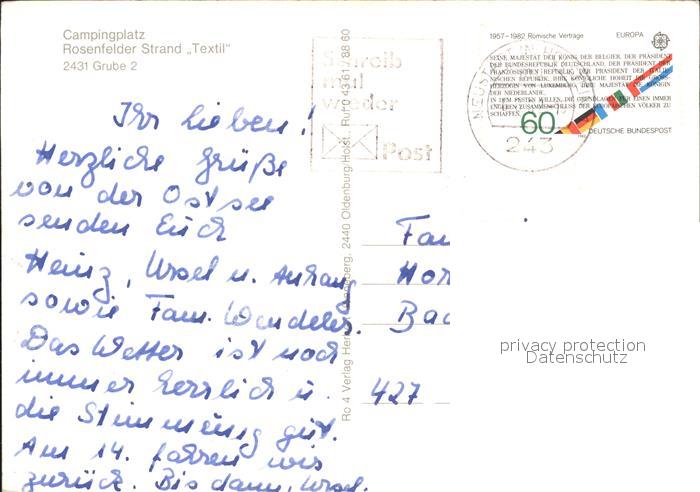 Campingplatz
Rosenfelder Strand „Textil"
2431 Grube 2
Ihr Lieben!
Herzliche Grüße
von der Ostsee
senden Euch
Heinz, Ursel u. Anhang
sowie Fam. Wendeler.
Das Wetter ist noch
immer herrlich u.
die Stimmung gut.
Am 14. fahren wir
zurück. Bis dann, Ursel.
Ro 4 Verlag Oldenburg/Holst., Ruf 0 43 61 / 88 60
Schreib
mal
wieder
Post
1957–1982 Römische Verträge EUROPA
SEINE MAJESTÄT DER KÖNIG DER BELGIER, DER PRÄSIDENT
DER BUNDESREPUBLIK DEUTSCHLAND, DER PRÄSIDENT DER
FRANZÖSISCHEN REPUBLIK, DER PRÄSIDENT DER ITALIE-
NISCHEN REPUBLIK, IHRE KÖNIGLICHE HOHEIT DIE
HERZOGIN VON LUXEMBURG, IHRE MAJESTÄT DIE KÖNIGIN
DER NIEDERLANDE,
IN DEM FESTEN WILLEN, DIE GRUNDLAGEN FÜR EINEN IMMER
ENGEREN ZUSAMMENSCHLUSS DER EUROPÄISCHEN VÖLKER ZU
SCHAFFEN,
60
DEUTSCHE BUNDESPOST
NEUSTADT IN
243
Fam
Hor
Bac
427
privacy protection
Datenschutz